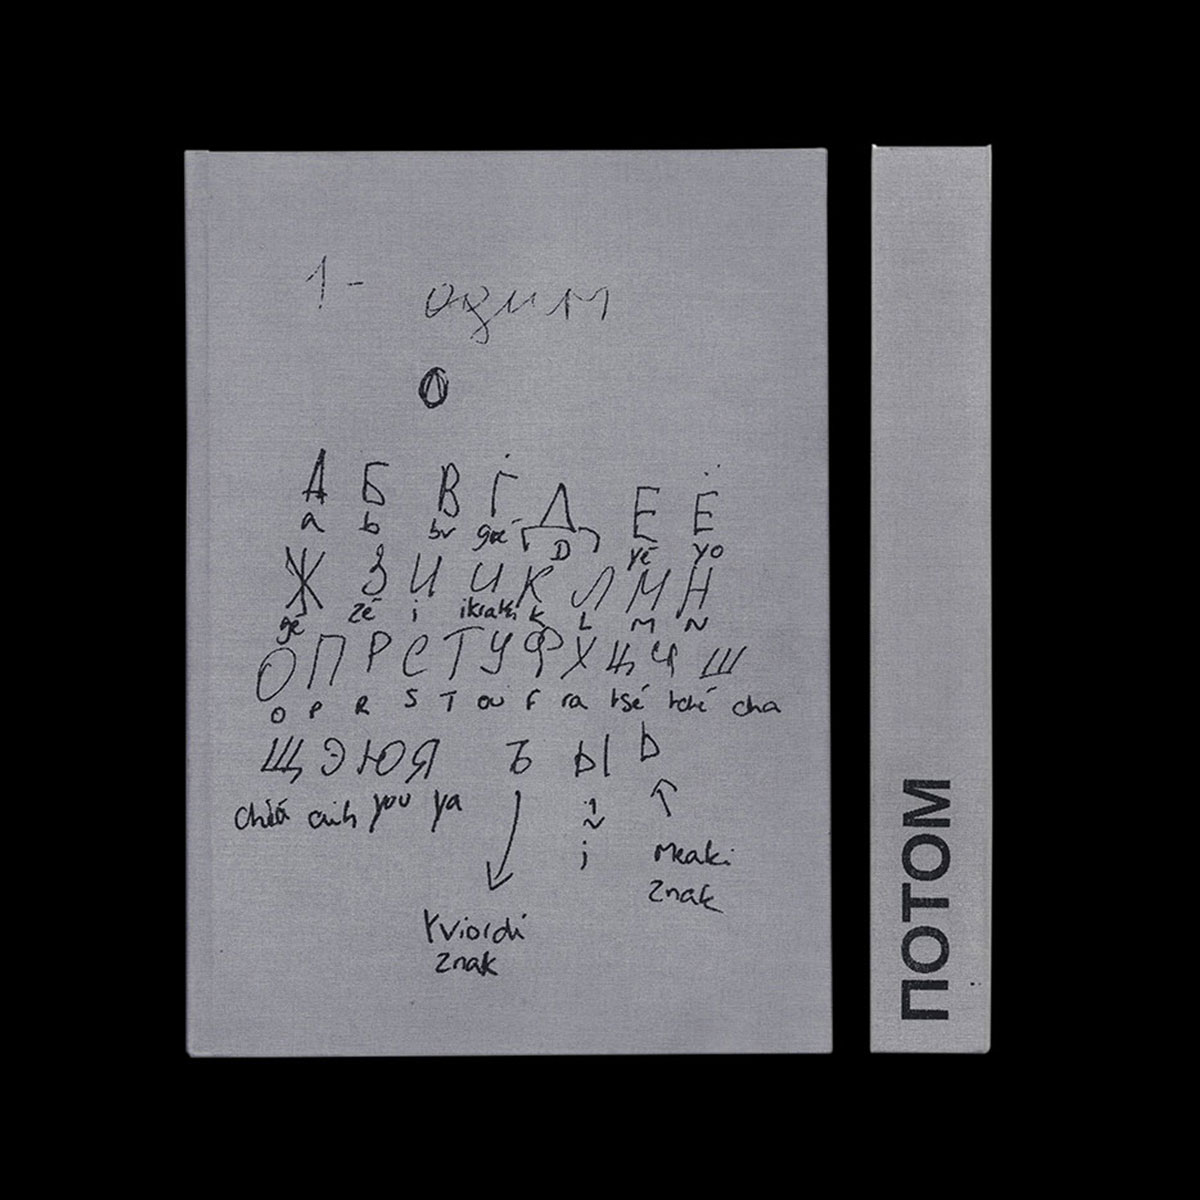 1- один
А Б В Г Д Е Ё
a b bv gué D yé yo
Ж З И И К Л М Н
gé zé i ikratki k L M N
О П Р С Т У Ф Х Ц Ч Ш
O P R S T ou F ra tsé tché cha
Щ Э Ю Я Ъ Ы Ь
you ya
Znak
Znak
ПОТОМ